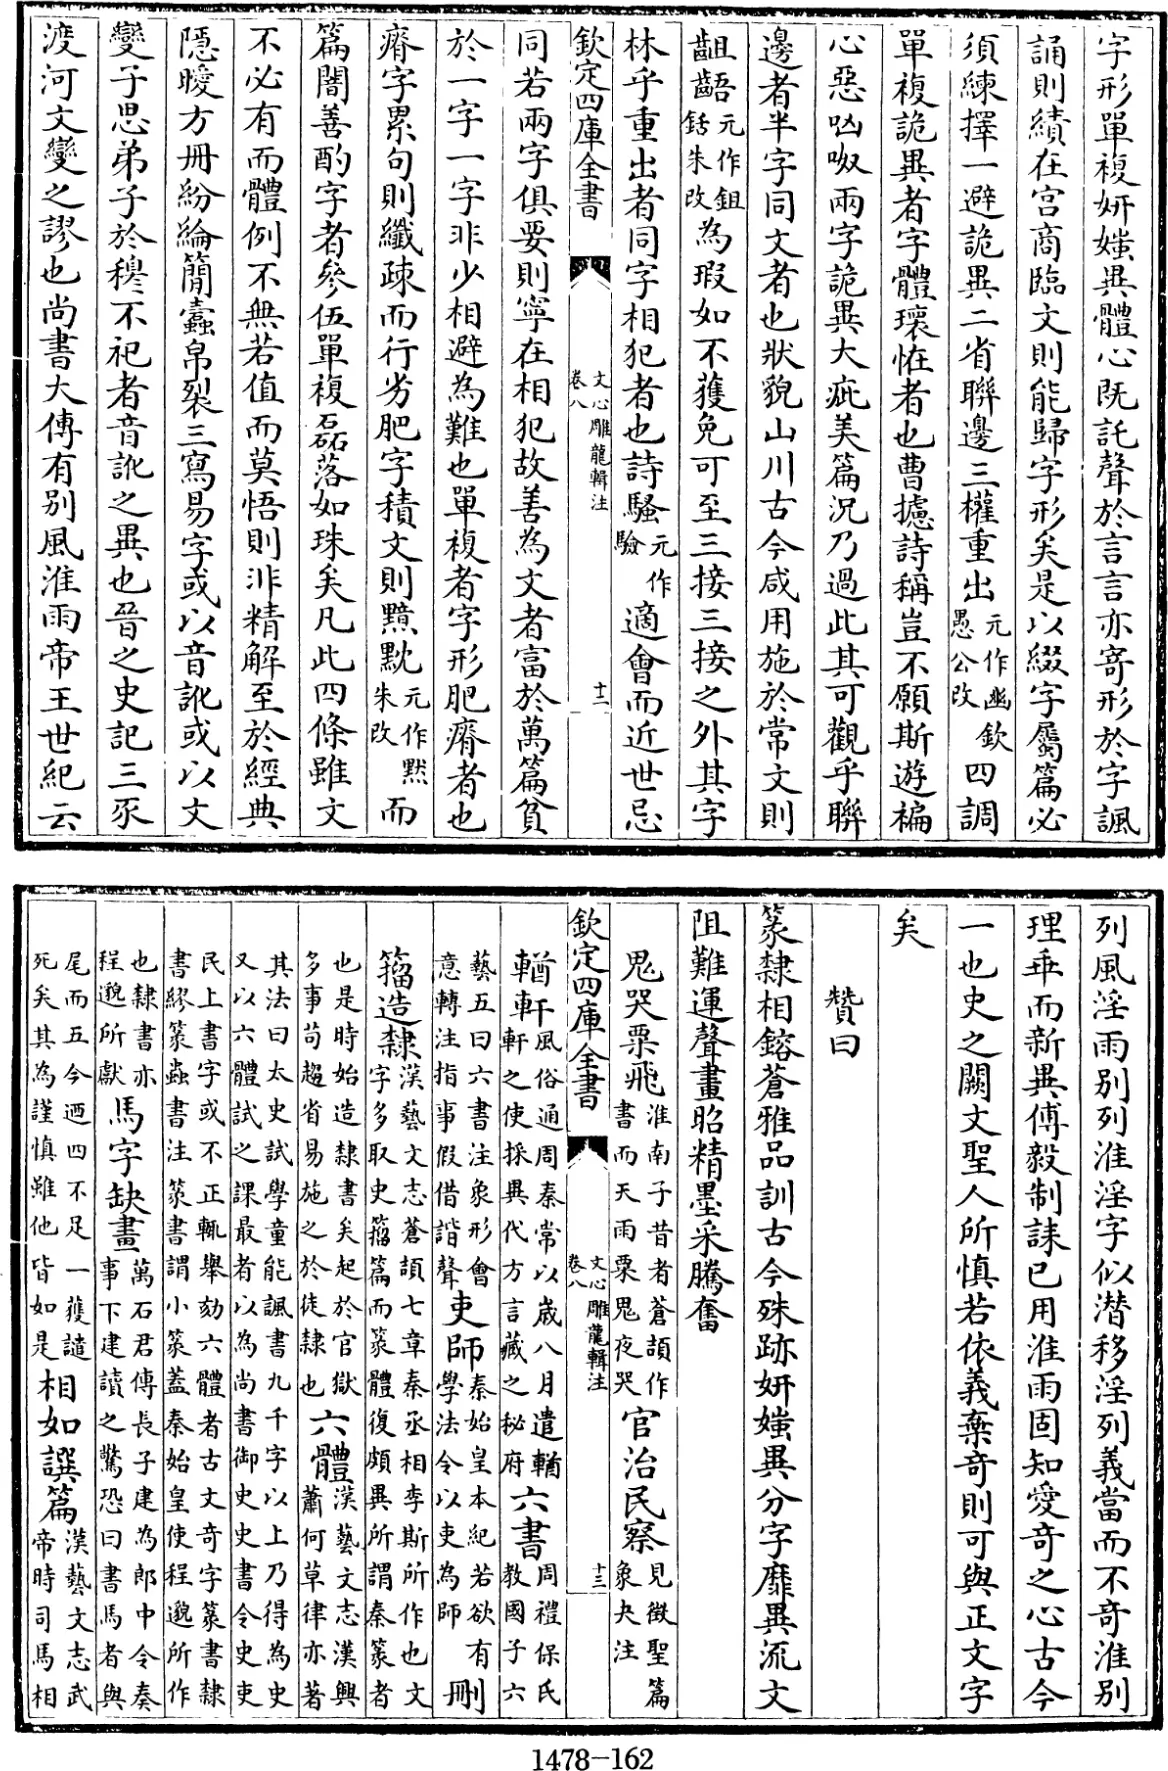 字形單複妍媸異體心既託聲於言言亦寄形於字諷
誦則績在宫商臨文則能歸字形矣是以綴字屬篇必
須練擇一避詭異二省聯邊三權重出元作幽欽愚公改四調
單複詭異者字體瓌怪者也曹攄詩稱豈不願斯遊褊
心惡㕼呶兩字詭異大疵美篇況乃過此其可觀乎聯
邊者半字同文者也狀貌山川古今咸用施於常文則
齟齬元作鉏鋙朱改為瑕如不獲免可至三接三接之外其字
林乎重出者同字相犯者也詩騷元作驗適會而近世忌
欽定四庫全書
文心雕龍輯注
卷八
十二
同若兩字俱要則寧在相犯故善為文者富於萬篇貧
於一字一字非少相避為難也單複者字形肥瘠者也
瘠字累句則纖疎而行劣肥字積文則黷黕元作黙朱改而
篇闇善酌字者參伍單複磊落如珠矣凡此四條雖文
不必有而體例不無若值而莫悟則非精解至於經典
隱曖方冊紛綸簡蠹帛裂三寫易字或以音訛或以文
變子思弟子於穆不祀者音訛之異也晉之史記三豕
渡河文變之謬也尚書大傳有别風淮雨帝王世紀云
列風淫雨别列淮淫字似潜移淫列義當而不奇淮别
理乖而新異傅毅制誄已用淮雨固知愛奇之心古今
一也史之闕文聖人所慎若依義棄奇則可與正文字
矣
贊曰
篆隸相鎔蒼雅品訓古今殊跡妍媸異分字靡異流文
阻難運聲畫昭精墨采騰奮
鬼哭粟飛淮南子昔者蒼頡作書而天雨粟鬼夜哭官治民察見徵聖篇象夬注
欽定四庫全書
文心雕龍輯注
卷八
十三
輶軒風俗通周秦常以歲八月遣輶軒之使採異代方言藏之秘府六書周禮保氏教國子六
藝五曰六書注象形會意轉注指事假借諧聲吏師秦始皇本紀若欲有學法令以吏為師刪
籀造隸漢藝文志蒼頡七章秦丞相李斯所作也文字多取史籀篇而篆體復頗異所謂秦篆者
也是時始造隸書矣起於官獄多事苟趨省易施之於徒隸也六體漢藝文志漢興蕭何草律亦著
其法曰太史試學童能諷書九千字以上乃得為史又以六體試之課最者以為尚書御史史書令史吏
民上書字或不正輒舉劾六體者古文奇字篆書隸書繆篆蟲書注篆書謂小篆蓋秦始皇使程邈所作
也隸書亦程邈所獻馬字缺畫萬石君傳長子建為郎中令奏事下建讀之驚恐曰書馬者與
尾而五今迺四不足一獲譴死矣其為謹慎雖他皆如是相如譔篇漢藝文志武帝時司馬相
1478-162